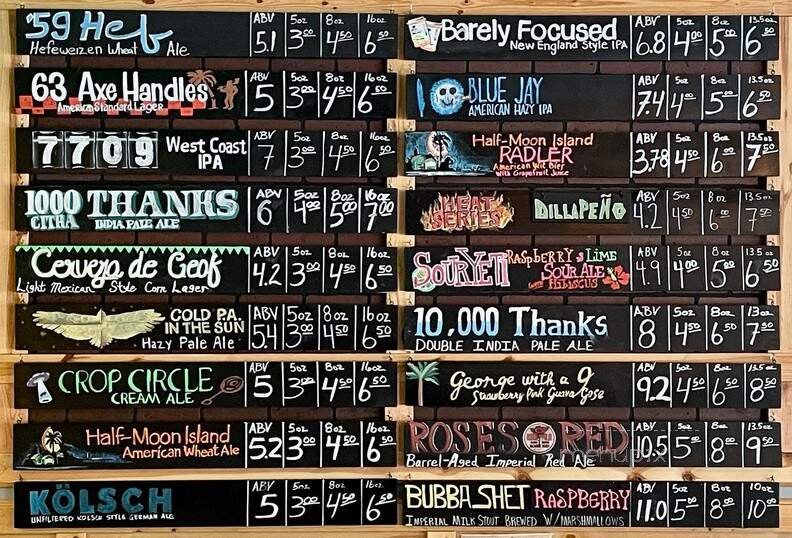 '59 Hef
Hefeweizen Wheat Ale
ABV 5oz 8oz 16oz
5.1 3⁰⁰ 4⁵⁰ 6⁵⁰
63 Axe Handles
American Standard Lager
ABV 5oz 8oz 16oz
5 3⁰⁰ 4⁵⁰ 6⁵⁰
7709
West Coast
IPA
ABV 5oz 8oz 16oz
7 3⁰⁰ 4⁵⁰ 6⁵⁰
1000 THANKS
CITRA INDIA PALE ALE
ABV 5oz 8oz 16oz
6 4⁰⁰ 5⁰⁰ 7⁰⁰
Cerveza de Geof
Light Mexican Style Corn Lager
ABV 5oz 8oz 16oz
4.2 3⁰⁰ 4⁵⁰ 6⁵⁰
GOLD P.A.
IN THE SUN
Hazy Pale Ale
ABV 5oz 8oz 16oz
5.4 3⁰⁰ 4⁵⁰ 6⁵⁰
CROP CIRCLE
CREAM ALE
ABV 5oz 8oz 16oz
5 3⁰⁰ 4⁵⁰ 6⁵⁰
Half-Moon Island
American Wheat Ale
ABV 5oz 8oz 16oz
5.2 3⁰⁰ 4⁵⁰ 6⁵⁰
KÖLSCH
UNFILTERED KÖLSCH STYLE GERMAN ALE
ABV 5oz 8oz 16oz
5 3⁰⁰ 4⁵⁰ 6⁵⁰
Barely Focused
New England Style IPA
ABV 5oz 8oz 16oz
6.8 4⁰⁰ 5⁰⁰ 6⁵⁰
BLUE JAY
AMERICAN HAZY IPA
ABV 5oz 8oz 13.5oz
7.4 4⁰⁰ 5⁰⁰ 6⁵⁰
Half-Moon Island
RADLER
American Wit Bier
With Grapefruit Juice
ABV 5oz 8oz 13.5oz
3.78 4⁵⁰ 6⁰⁰ 7⁵⁰
HEAT
SERIES
DILLAPEÑO
ABV 5oz 8oz 13.5oz
4.2 4⁵⁰ 6⁰⁰ 7⁵⁰
SOUR YETI
RASPBERRY & LIME
SOUR ALE
WITH HIBISCUS
ABV 5oz 8oz 13.5oz
4.9 4⁰⁰ 5⁰⁰ 6⁵⁰
10,000 Thanks
DOUBLE INDIA PALE ALE
ABV 5oz 8oz 13oz
8 4⁵⁰ 6⁵⁰ 7⁵⁰
George with a G
Strawberry Pink Guava Gose
ABV 5oz 8oz 13.5oz
9.2 4⁵⁰ 6⁵⁰ 8⁵⁰
ROSES RED
Barrel-Aged Imperial Red Ale
ABV 5oz 8oz 13.5oz
10.5 5⁰⁰ 8⁰⁰ 9⁵⁰
BUBBA SHET RASPBERRY
IMPERIAL MILK STOUT BREWED W/MARSHMALLOWS
ABV 5oz 8oz 10oz
11.0 5⁰⁰ 8⁵⁰ 10⁰⁰